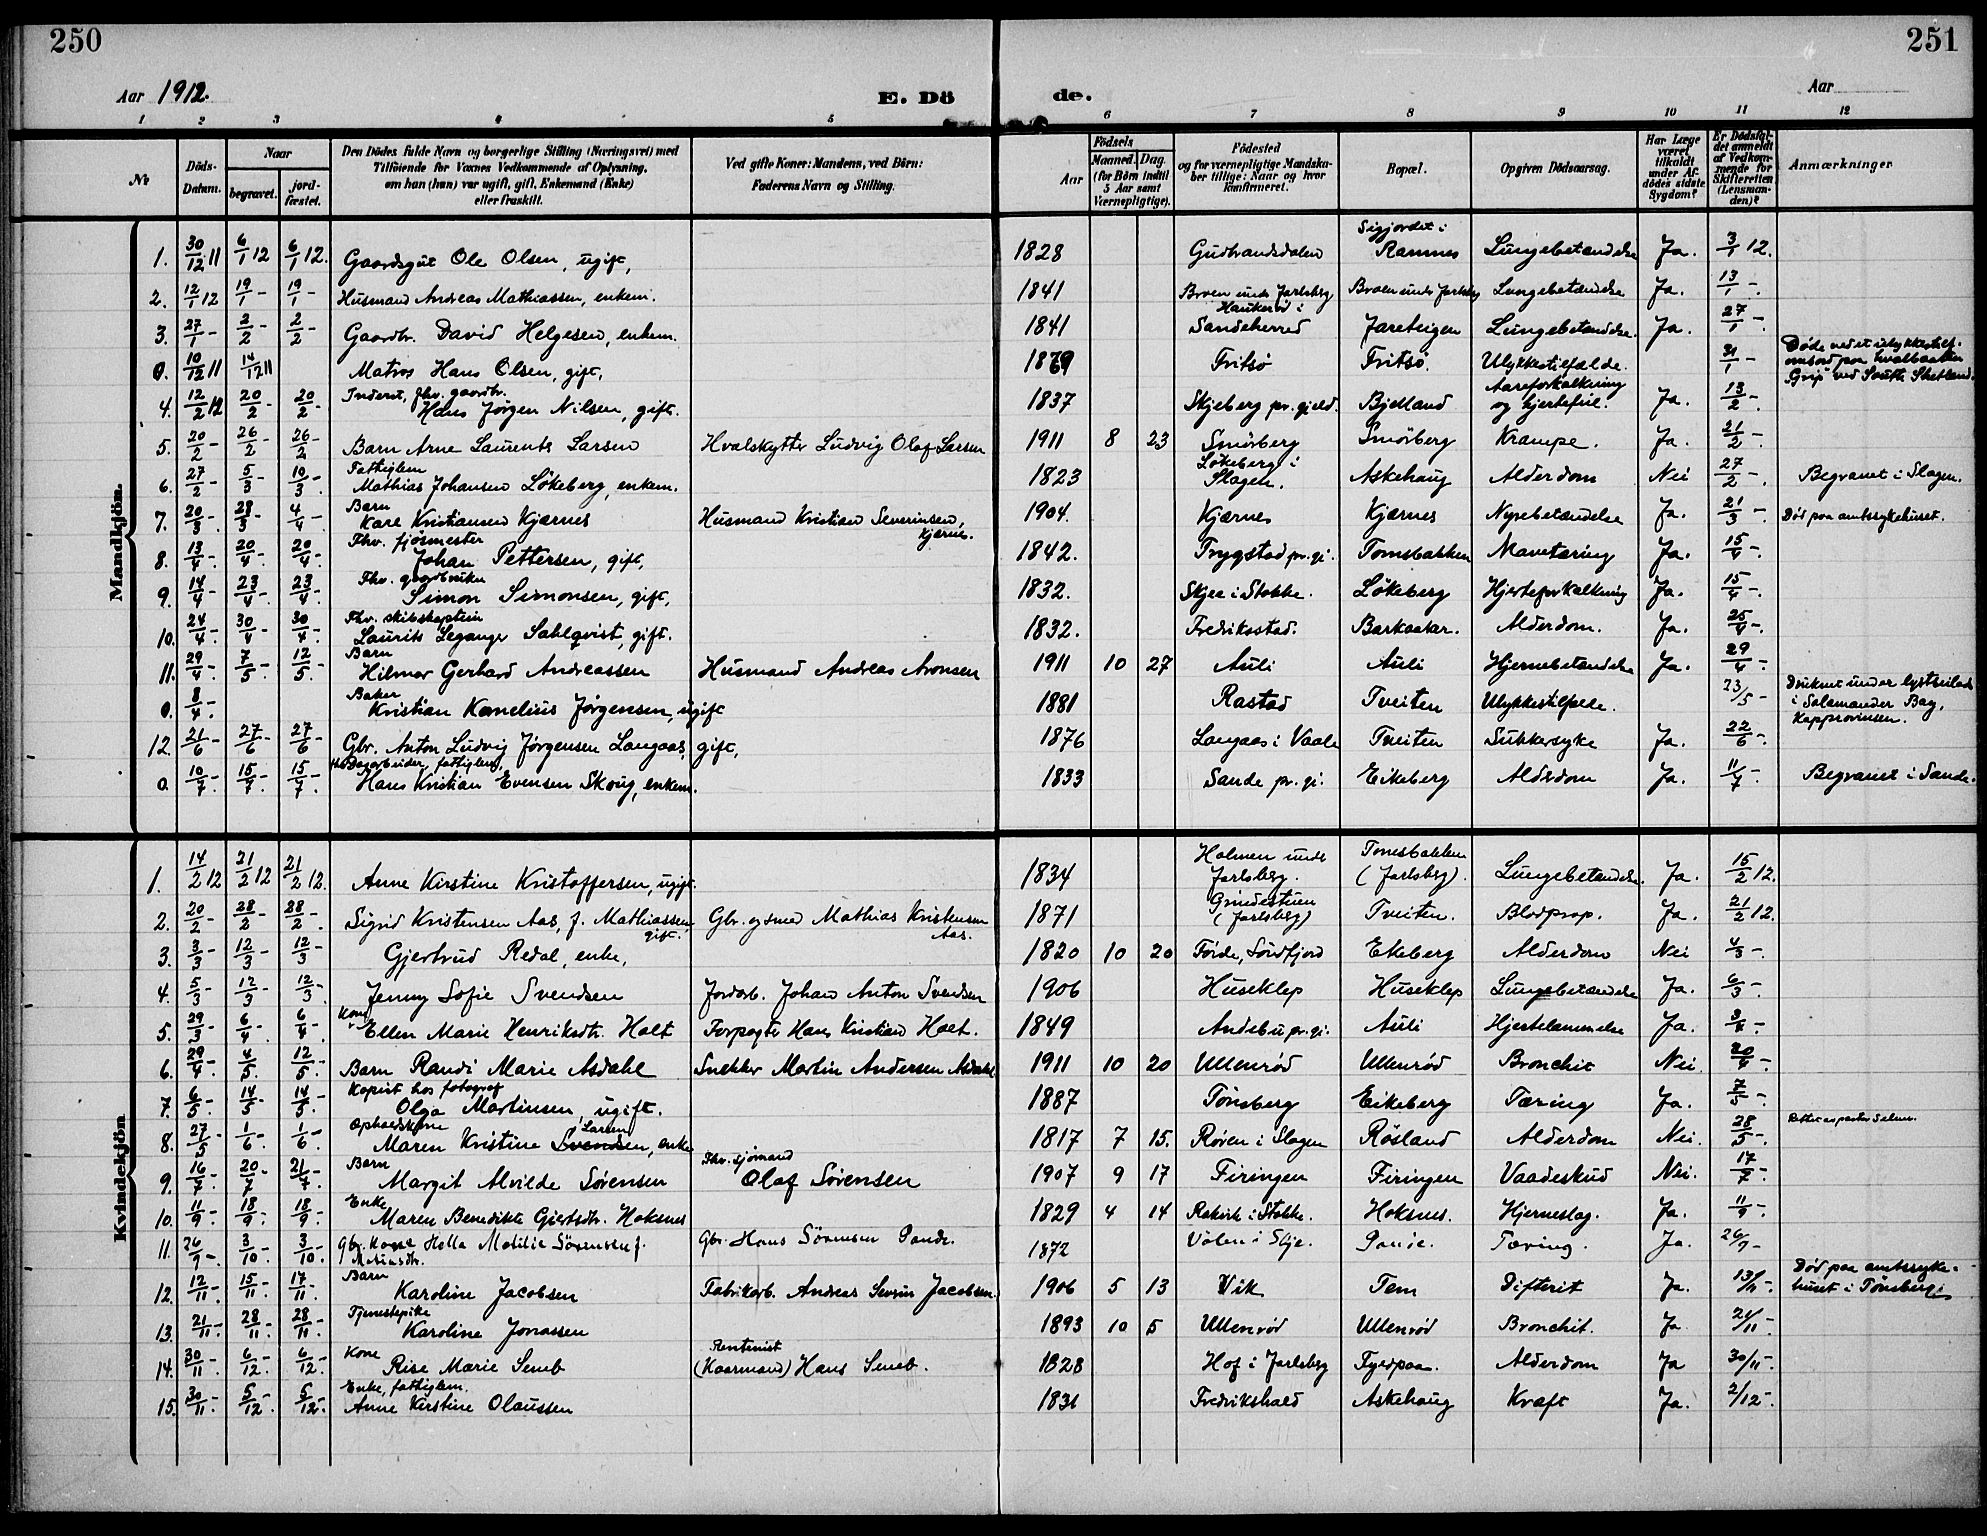 250
251
Aar 1912.
E. Dö de.
Aar
1 2 3 4 5 6 7 8 9 10 11 12
No
Døds-Datum.
Naar
begravet.
jord-fæstet.
Den Dödes fulde Navn og borgerlige Stilling (Næringsvei) med
Tilföiende for Voxnes Vedkommende af Oplysning,
om han (hun) var ugift, gift, Enkemand (Enke)
eller fraskilt.
Ved gifte Koner: Mandens, ved Börn:
Faderens Navn og Stilling.
Födsels
Aar
Maaned. Dag.
(for Börn indtil
5 Aar samt
Værnepligtige).
Födested
og for værnepligtige Mandska-
ber tillige: Naar og hvor
konfirmeret.
Bopæl.
Opgiven Dödsaarsag.
Har Læge
været
tilkaldt
under Af-
dödes sidste
Sygdom?
Er Dödsfal-
det anmeldt
af Vedkom-
mende for
Skifteretten
(Lensman-
den)?
Anmærkninger
Mandkjön.
1. 30/12 11 6/1 12 6/1 12. Gaardsgut Ole Olsen, ugift, 1828 Gudbrandsdalen Sigjordet i Ramnes Lungebetændelse Ja. 3/1 12.
2. 12/1 12 19/1 - 19/1 - Husmand Andreas Mathiassen, enkem. 1841 Broen under Jarlsberg Broen under Jarlsberg Lungebetændelse Ja. 13/1 -.
3. 27/1 - 2/2 - 2/2 - Gaardbr. David Helgesen, enkem. 1841 Haukerød i Sandeherred Jareteigen Lungebetændelse. Ja. 27/1 -.
0. 10/12 11 14/12 11 Matros Hans Olsen, gift, 1879 Fritsø Fritsø. Ulykkestilfælde. 31/1 - Døde ved et ulykkestilf. ombord paa hvalbaaten "Grip" ved South Shetland.
4. 12/2 12 20/2 - 20/2 - Inderst, fhv. gaardbr. Hans Jørgen Nilsen, gift. 1837 Skjeberg pr.gjeld. Bjelland Aareforkalkning og hjertefeil. Ja. 13/2 -.
5. 20/2 - 26/2 - 26/2 - Barn Arne Laurents Larsen Hvalskytter Ludvig Olaf Larsen 1911 8 23 Smørberg Smörberg Krampe. Ja. 21/2 -.
6. 27/2 - 5/3 - 10/3 -. Fattiglem Mathias Johansen Løkeberg, enkem. 1823 Løkeberg i Slagen. Askehaug Alderdom Nei 27/2 -. Begravet i Slagen.
7. 20/3 - 28/3 - 4/4 -. Barn Kare Kristiansen Kjærnes Husmand Kristian Severinsen, Kjærnes. 1904. Kjærnes Kjærnes Nyrebetændelse Ja. 21/3 -. Död paa amtssykehuset.
8. 13/4 - 20/4 - 20/4 -. Fhv. fjösmester Johan Pettersen, gift, 1842. Trygstad pr.gj. Tomsbakken Mavetæring Ja. 15/4 -.
9. 14/4 - 23/4 - 23/4 -. Fhv. gaardbruker Simon Simonsen, gift, 1832. Skjee i Stokke. Løkeberg Hjerteforkalkning Ja. 15/4 -.
10. 24/4 - 30/4 - 30/4 -. Fhv. skibskaptein Laurits Leganger Sahlqvist, gift. 1832. Fredriksstad. Barkaaker. Alderdom. Ja. 25/4 -.
11. 29/4 - 7/5 - 12/5 -. Barn Hilmar Gerhard Andreassen Husmand Andreas Aronsen 1911 10 27 Auli Auli Hjernebetændelse Ja. 29/4 -.
0. 8/4 -. Baker Kristian Kornelius Jørgensen, ugift 1881 Rastad Tveiten Ulykkestilfælde. 23/5 - Druknet under lystseilads i Salamander Bay, Kapprovinsen.
12. 21/6 - 27/6 - 27/6 - Gbr. Anton Ludvig Jørgensen Langaas, gift, 1876 Langaas i Vaale Tveiten Sukkersyke Ja. 22/6 -.
0. 10/7 - 15/7 - 15/7 -. Dagarbeider, fattiglem, Hans Kristian Evensen Skoug, enkem. 1833 Sande pr.gj. Eikeberg Alderdom Ja. 11/7 -. Begravet i Sande.
Kvindekjön
1. 14/2 12 21/2 12 21/2 12. Anne Kirstine Kristoffersen, ugift. 1834 Holmen under Jarlsberg. Tomsbakken (Jarlsberg). Lungebetændelse. Ja. 15/2 12.
2. 20/2 - 28/2 - 28/2 -. Sigrid Kristensen Aas, f. Mathiassen gift. Gbr. og smed Mathias Kristensen Aas. 1871 Grindestuen (Jarlsberg) Tveiten. Blodprop. Ja. 21/2 12.
3. 3/3 - 12/3 - 12/3 - Gjertrud Redal, enke, 1820 10 20 Førde, Söndfjord Ekeberg Alderdom Nei 4/3 -.
4. 5/3 - 12/3 - 12/3 - Jenny Sofie Svendsen Jordarb. Johan Anton Svendsen 1906 Huseklep Huseklep Lungebetændelse Ja. 6/3 -.
5. 29/3 - 6/4 - 6/4 -. Kone Ellen Marie Henriksdtr. Holt Forpagter Hans Kristian Holt. 1849 Andebu pr.gj. Auli Hjertelammelse Ja. 3/4 -.
6. 29/4 - 4/5 - 12/5 -. Barn Randi Marie Asdahl Snekker Martin Andersen Asdahl 1911 10 20 Ullenrød Ullenrød Bronchit Nei 20/4 -.
7. 6/5 - 14/5 - 14/5 -. Kopist hos fotograf Olga Martinsen, ugift. 1887 Tönsberg Eikeberg Tæring Ja. 7/5 -.
8. 27/5 - 1/6 - 1/6 -. Opholdskone Maren Kristine Svendsen Larsen, enke 1817 7 15. Røren i Slagen Røsland Alderdom Nei. 28/5 -.
9. 16/7 - 20/7 - 21/7 -. Barn Margit Alvilde Sørensen Fhv. sjömand Olaf Sørensen 1907 9 17 Firingen Firingen Vaadeskud Nei. 17/7 -.
10. 11/9 - 18/9 - 18/9 -. Enke Maren Benedikte Gjertsdtr. Hoksnes 1829 4 14 Rakvik i Stokke. Hoksnes. Hjerneslag. Ja. 11/9 -.
11. 26/9 - 3/10 - 3/10 - Gbr. Kone Hella Matilie Sörensen f. Matiasdtr. Gbr. Hans Sörensen 1872 Valen i Skje. Tæring. Ja. 26/9 -
12. 12/11 - 15/11 - 17/11 -. Barn Karoline Jacobsen Fabrikarb. Andreas Severin Jacobsen. 1906 5 13 Vik Tem Difterit Ja. 13/11 -. Död paa amtssyke- huset i Tønsberg.
13. 21/11 - 28/11 - 28/11 -. Tjenestepike Karoline Jonassen 1893 10 5 Ullenrød Ullenrød Bronchit. Ja 21/11 -.
14. 30/11 - 6/12 - 6/12 -. Kone Rise Marie Semb Rentenist (Kaarmand) Hans Semb. 1828 Hof i Jarlsberg Alderdom Ja 30/11 -.
15. 30/11 - 5/12 - 5/12 -. Enke, fattiglem. Anne Kirstine Olaussen 1831 Fredrikshald Askehaug Kræft Ja. 2/12 -.